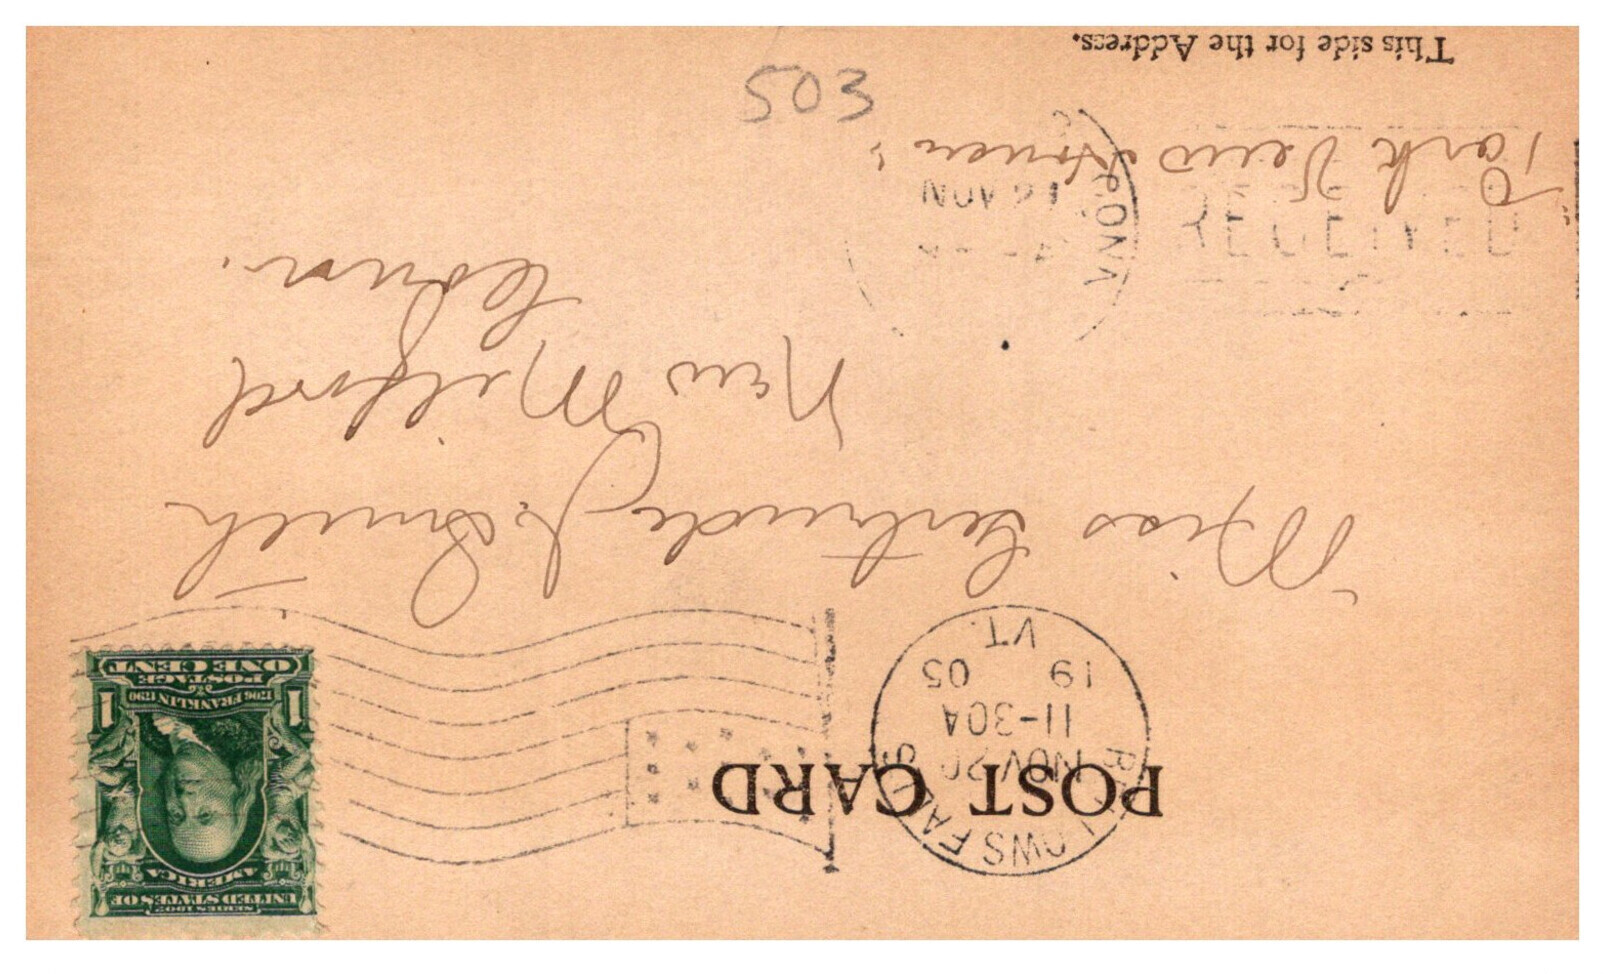 POST CARD
SERIES 1902
UNITED STATES OF
AMERICA
1706 FRANKLIN 1790
POSTAGE
1 ONE CENT 1
BELLOWS FALLS
NOV 20
11-30A
19 05
VT.
Miss Gertrude J. Smith
New Milford
Conn.
RECEIVED
NOV
Park View
This side for the Address.
503